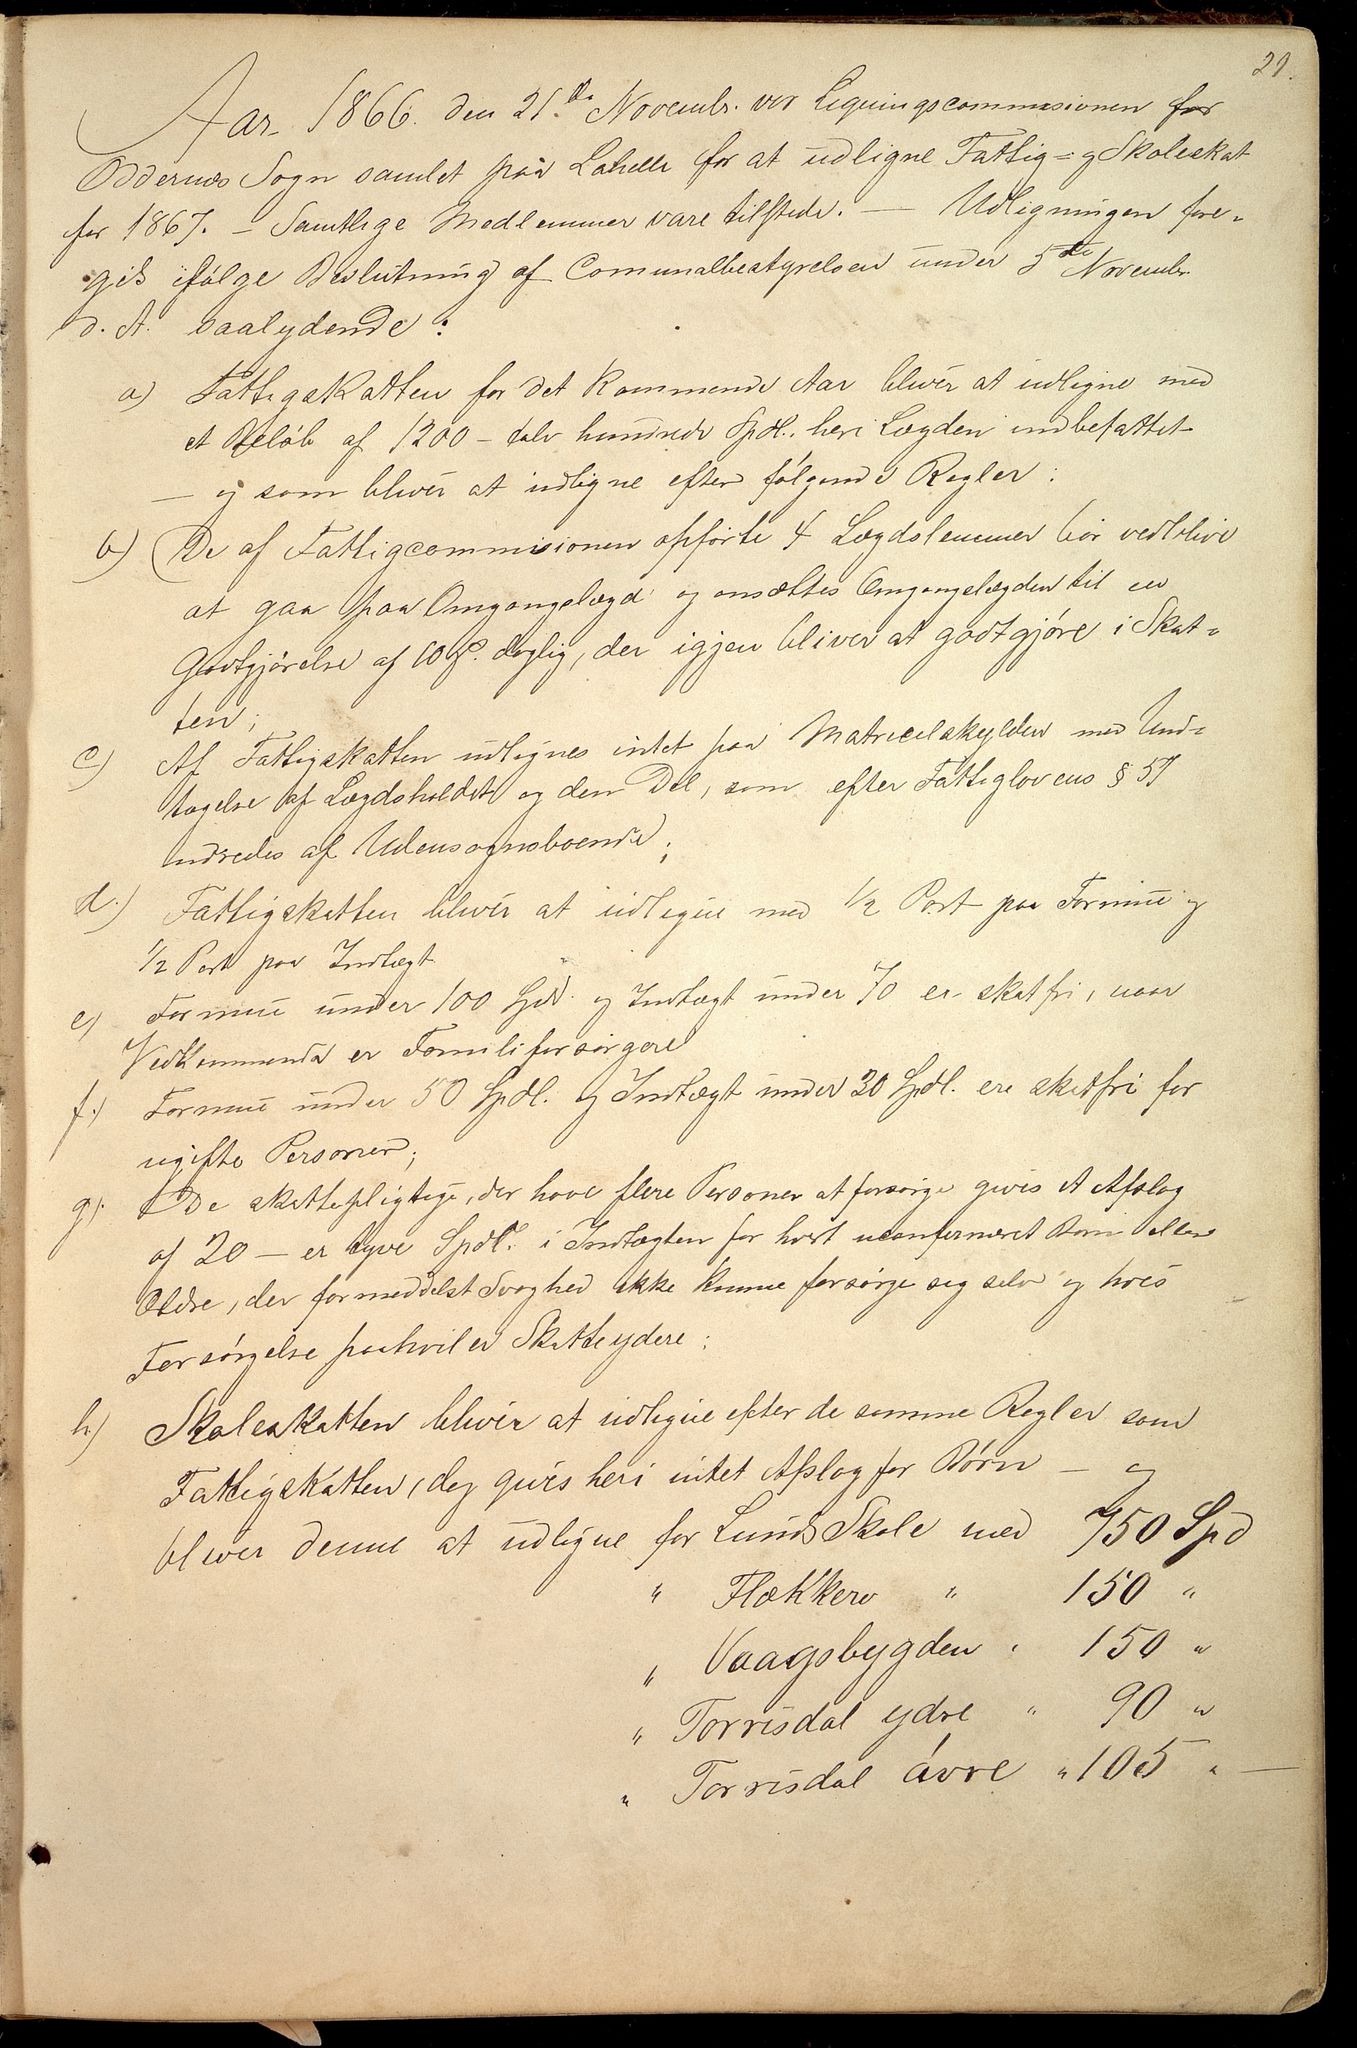 21.
Aar 1866. den 21de Novembr. var Ligningscommissionen for
Oddernæs Sogn samlet paa Lahelle for at udligne Fattig= og Skoleskat
for 1867. – Samtlige Medlemmer vare tilstede. — Udligningen fore-
gik ifølge Beslutning af Comunalbestyrelsen under 5te Novembr.
d. A. saalydende:
a) Fattigskatten for det kommende Aar bliver at udligne med
et Beløb af 1200 – tolv hundrede Spdl., heri Lægden indbefattet
— og som bliver at udligne efter følgende Regler:
b) De af Fattigcommisionen opførte 4 Lægdslemmer bør vedblive
at gaa paa Omgangslægd og ansættes Omgangslægden til en
Godtgjørelse af 10 β. daglig, der igjen bliver at godtgjøre i Skat-
ten;
c) Af Fattigskatten udlignes intet paa Matricelskylden med Und-
tagelse af Lægdsholdet og den Del, som efter Fattiglovens § 57
udredes af Udensognsboende;
d.) Fattigskatten bliver at udligne med ½ Part paa Formue og
½ Part paa Indtægt
e) Formue under 100 Spd. og Indtægt under 70 er skatfri, naar
Vedkommende er Familieforsørgere
f.) Formue under 50 Spdl. og Indtægt under 30 Spdl. ere skatfri for
ugifte Personer;
g). De skattepligtige, der have flere Personer at forsørge gives et Afslag
af 20 – er tyve Spdl. i Indtægten for hvert uconfirmeret Barn eller
Ældre, der formedelst Svaghed ikke kunne forsørge sig selv og hvis
Forsørgelse paahviler Skatteydere;
h.) Skoleskatten bliver at udligne efter de samme Regler som
Fattigskatten, dog gives heri intet Afslag for Børn – og
bliver denne at udligne for Lunds Skole med 750 Spd
" Flækkerø " 150 "
" Vaagsbygden " 150 "
" Torrisdal ydre " 90 "
" Torrisdal øvre " 105 " —